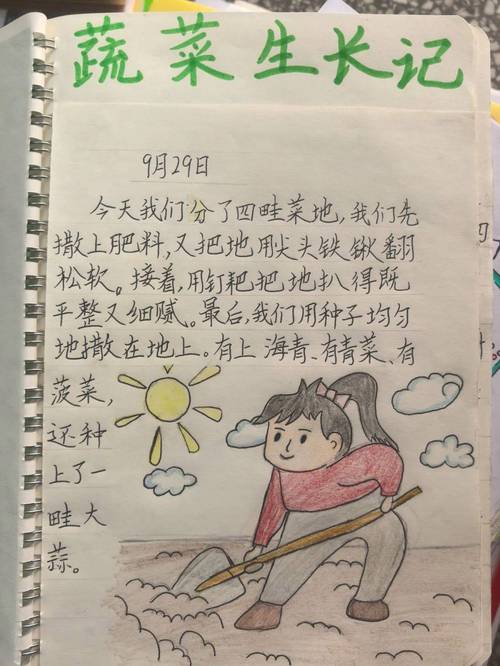 蔬菜生长记
9月29日
今天我们分了四畦菜地,我们先
撒上肥料,又把地用尖头铁锹翻
松软。接着,用钉耙把地扒得既
平整又细腻。最后,我们用种子均匀
地撒在地上。有上海青、有青菜、有
菠菜,
还种
上了一
畦大
蒜。